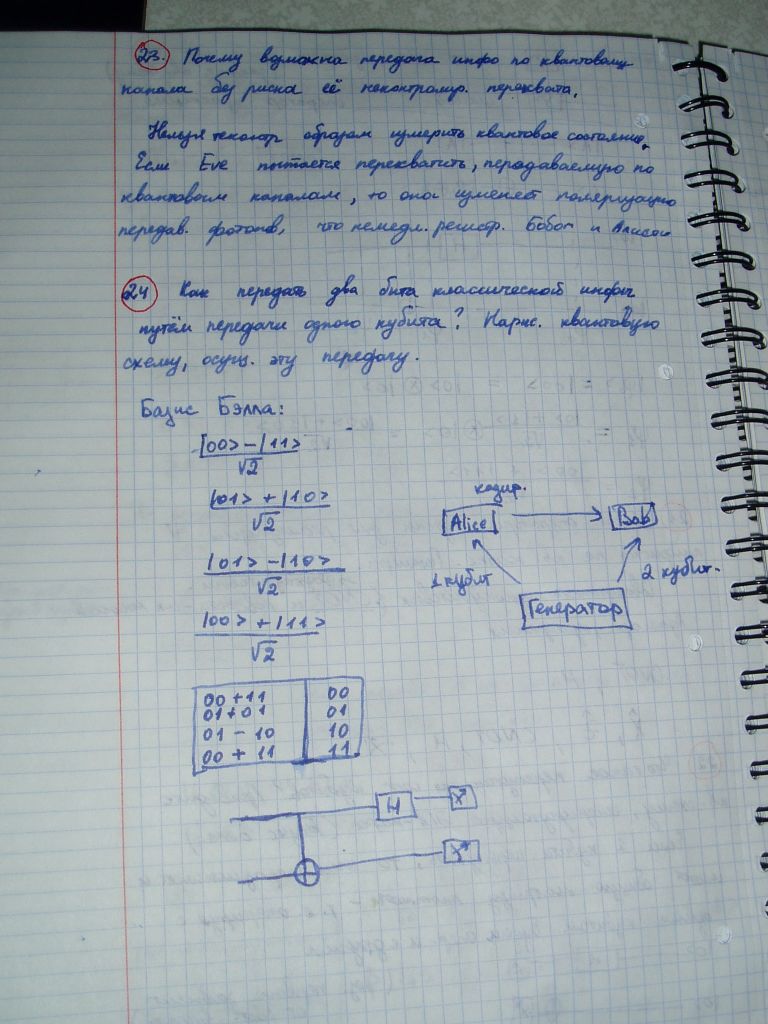 23. Почему возможна передача инфо по квантовому
каналу без риска её неконтролир. перехвата.
Нельзя образом измерить квантовое состояние.
Если Eve пытается перехватить, передаваемую по
квантовым каналам, то она изменяет поляризацию
передав. фотонов, что немедл. регистр. Бобом и Алисой
24 Как передать два бита классической инфы
путём передачи одного кубита? Нарис. квантовую
схему, осущ. эту передачу.
Базис Бэлла:
|00> - |11>
√2
|01> + |10>
√2
|01> - |10>
√2
|00> + |11>
√2
кодир.
Alice Bob
1 кубит 2 кубит.
Генератор
00 + 11 00
01 + 01 01
01 - 10 10
00 + 11 11
H